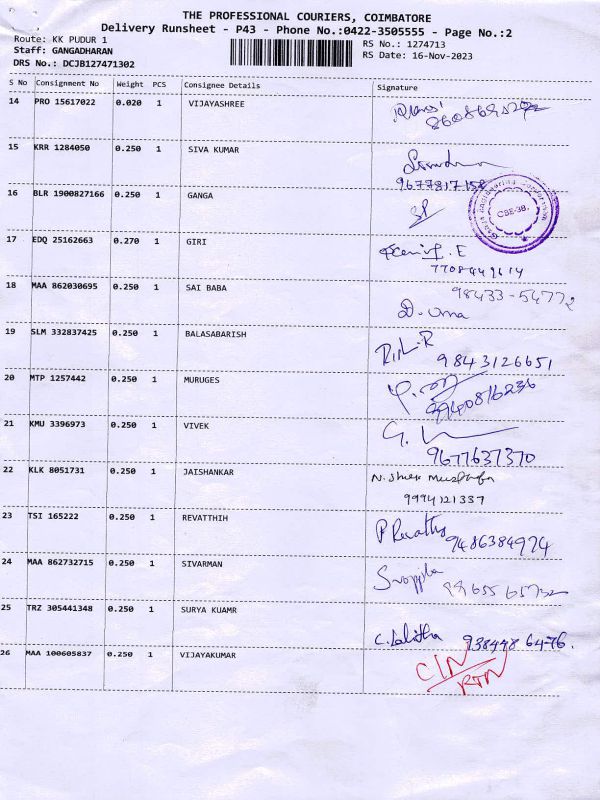 THE PROFESSIONAL COURIERS, COIMBATORE
Delivery Runsheet - P43 - Phone No.:0422-3505555 - Page No.:2
Route: KK PUDUR 1
RS No.: 1274713
Staff: GANGADHARAN
RS Date: 16-Nov-2023
DRS No.: DCJB127471302
S No Consignment No Weight PCS Consignee Details Signature
14 PRO 15617022 0.020 1 VIJAYASHREE
15 KRR 1284050 0.250 1 SIVA KUMAR
9677817158
16 BLR 1900827166 0.250 1 GANGA
CBE-38.
17 EDQ 25162663 0.270 1 GIRI
7708449614
18 MAA 862030695 0.250 1 SAI BABA 98433-54772
D. Uma
19 SLM 332837425 0.250 1 BALASABARISH
9843126651
20 MTP 1257442 0.250 1 MURUGES
9940816236
21 KMU 3396973 0.250 1 VIVEK
9677637370
22 KLK 8051731 0.250 1 JAISHANKAR
9994121337
23 TSI 165222 0.250 1 REVATTHIH P Revathy
9486384974
24 MAA 862732715 0.250 1 SIVARMAN
25 TRZ 305441348 0.250 1 SURYA KUAMR
C. Lalitha 938478 6476.
26 MAA 100605837 0.250 1 VIJAYAKUMAR C/N
RTN